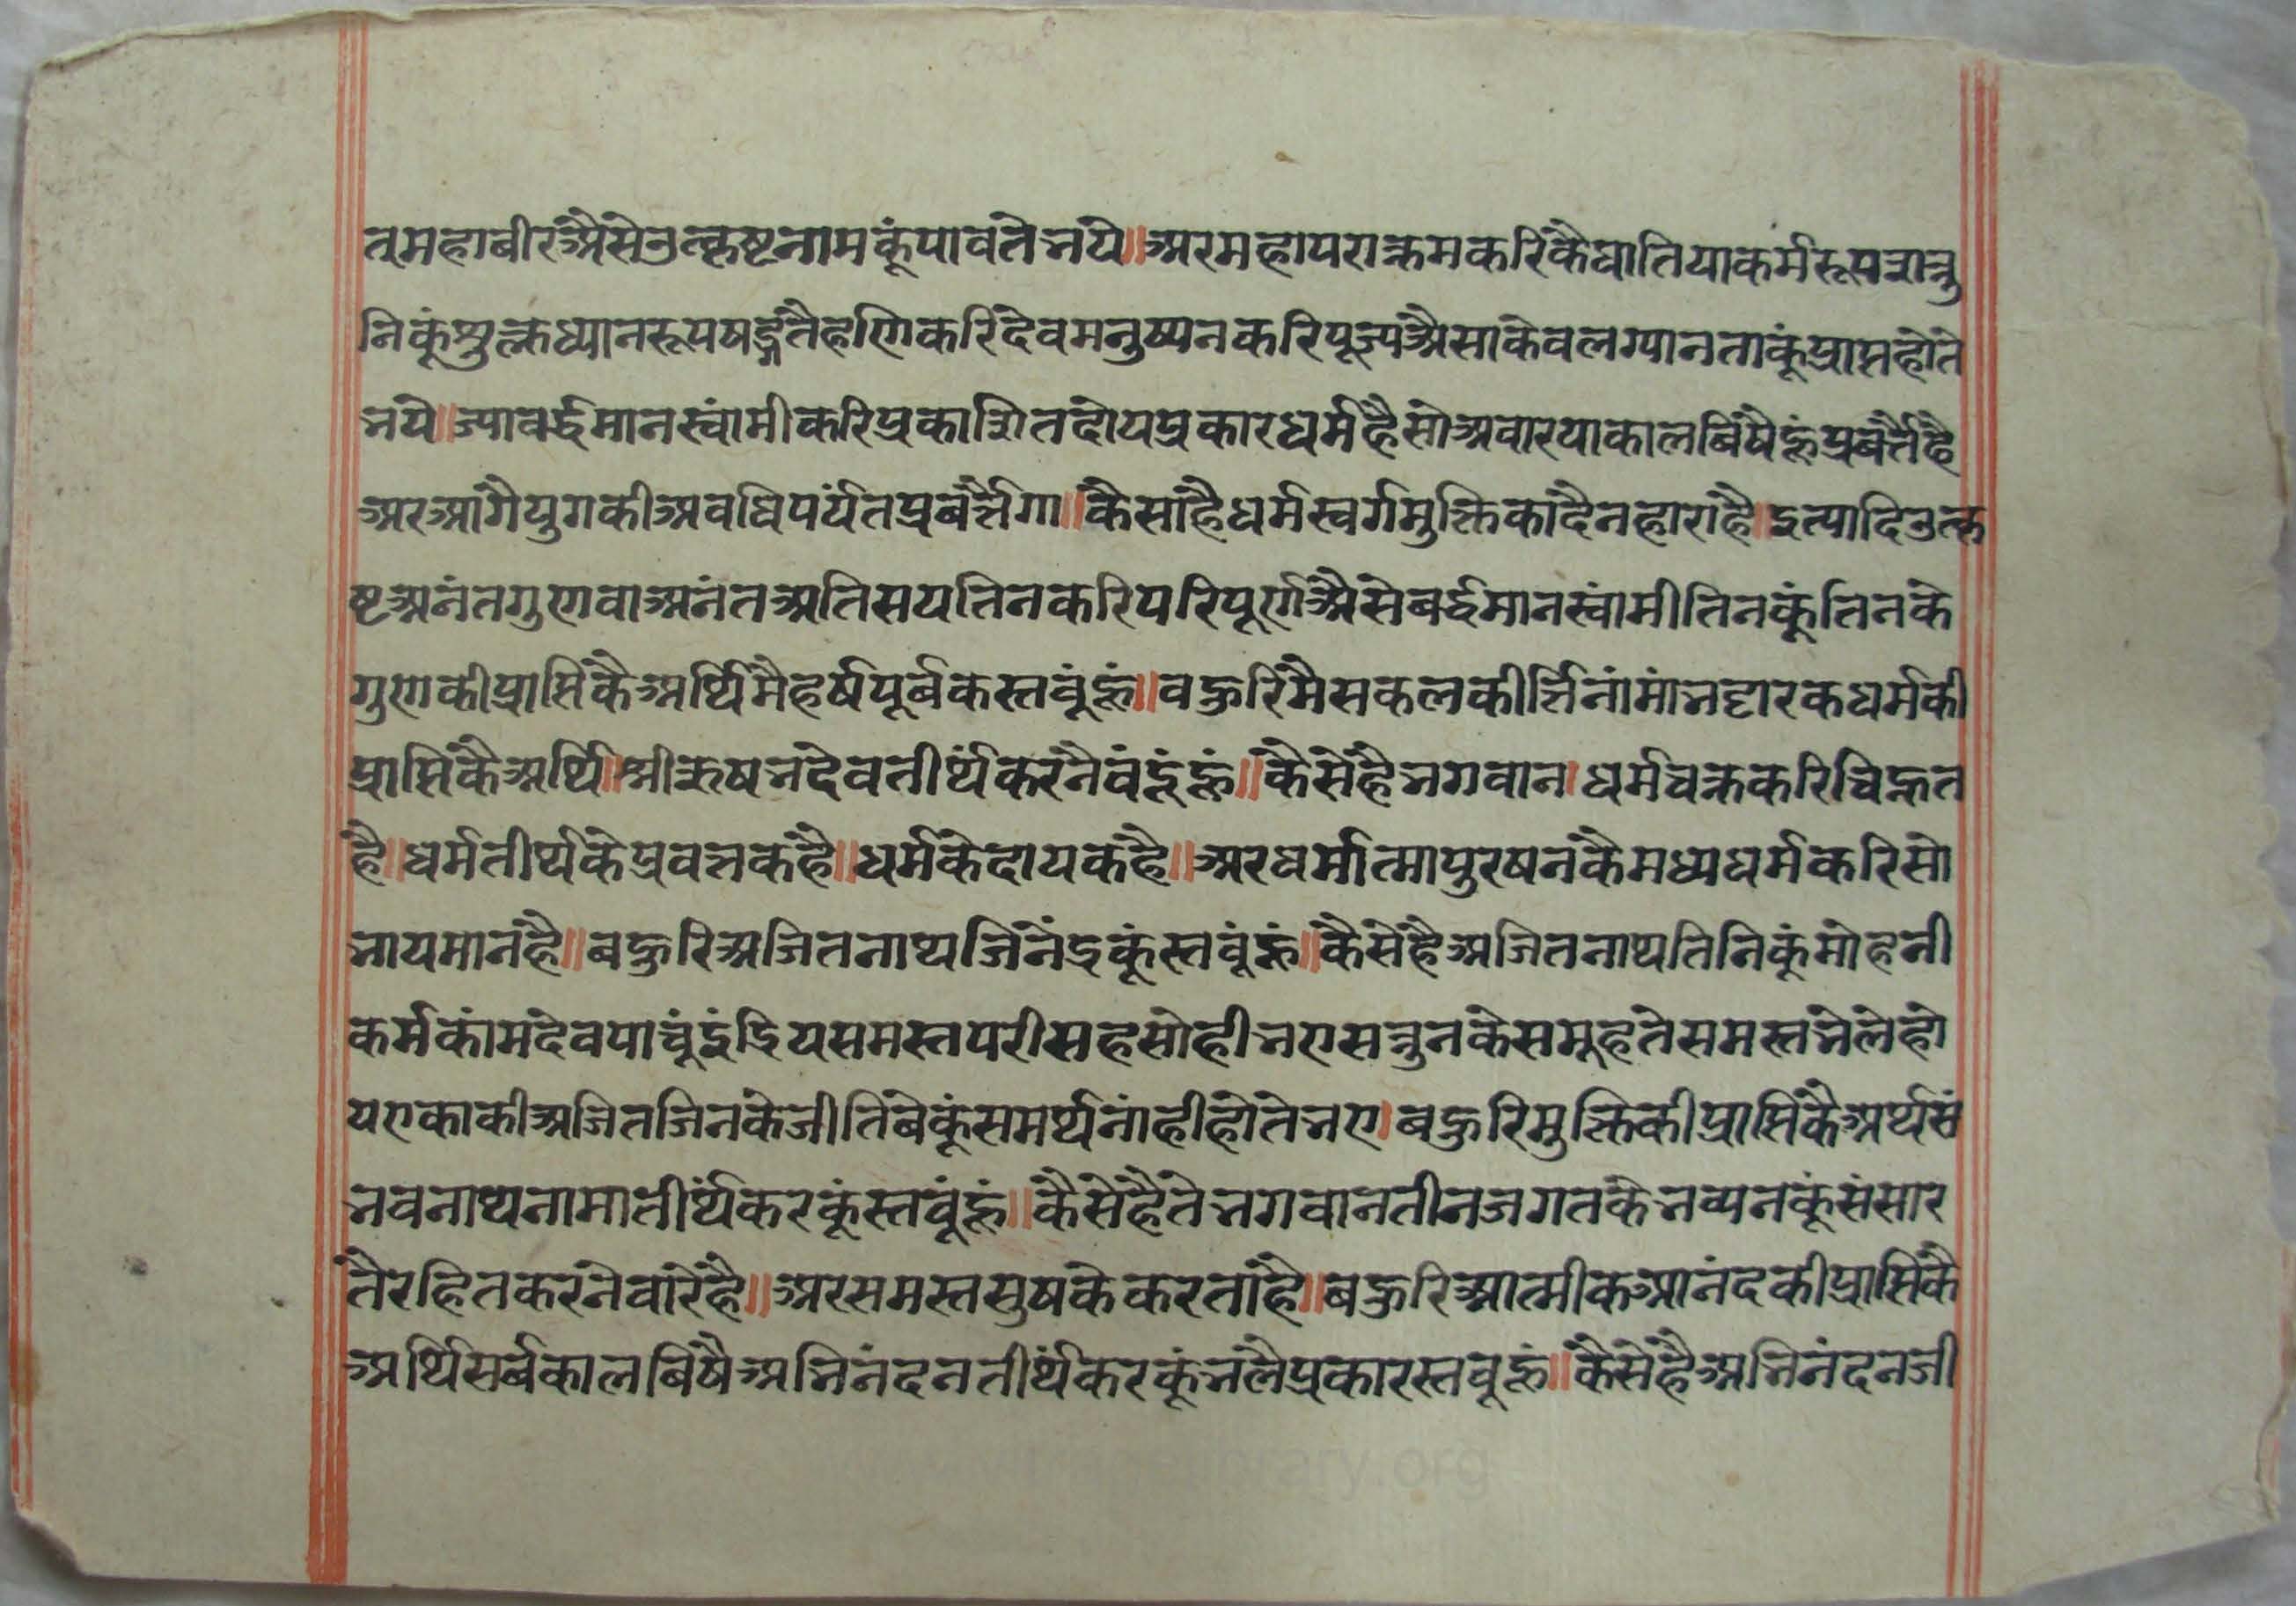 तमहाबीरअैसेउत्कृष्टनामकूंपावतेभये॥अरमहापराक्रमकरिकैघातियाकर्मरूपशत्रु
निकूंशुक्लध्यानरूपषड्गतैहणिकरिदेवमनुष्यनकरिपूज्यअैसाकेवलग्यानताकूंप्राप्तहोते
भये॥ज्यावर्द्धमानस्वांमीकरिप्रकाशितदोयप्रकारधर्महैसोअवारयाकालबिषैहूंप्रबर्तैहै
अरआगैयुगकीअवधिपर्यंतप्रबर्त्तैगा॥कैसाहैधर्मस्वर्गमुक्तिकादैनहाराहै॥इत्यादिउत्कृ
ष्टअनंतगुणवाअनंतअतिसयतिनकरिपरिपूर्णअैसेबर्द्धमानस्वांमीतिनकूंतिनके
गुणकीप्राप्तिकैअर्थिमैहर्षपूर्बकस्तवूंहूं॥वहुरिमैसकलकीर्त्तिनांमांभट्टारकधर्मकी
प्राप्तिकैअर्थि॥श्रीऋषभदेवतीर्थंकरनैवंदूंहूं॥कैसेहैभगवान।धर्मचक्रकरिचिह्नत
है॥धर्मतीर्थकेप्रवत्तकहै॥धर्मकेदायकहै॥अरधर्मात्मापुरषनकैमध्यधर्मकरिसो
भायमानहै॥बहुरिअजितनाथजिनेंद्रकूंस्तवूंहूं॥कैसेहैअजितनाथतिनिकूंमोहनी
कर्मकांमदेवपाचूंइंद्रियसमस्तपरीसहसोहीभएसत्रुनकेसमूहतेसमस्तभेलेहो
यएकाकीअजितजिनकेजीतिबेकूंसमर्थनांहीहोतेभए।बहुरिमुक्तिकीप्राप्तिकैअर्थसं
भवनाथनामातीर्थंकरकूंस्तवूंहूं॥कैसेहैतेभगवानतीनजगतकेभव्यनकूंसंसार
तैरहितकरनेवारेहै॥अरसमस्तसुषकेकरताहै॥बहुरिआत्मीकआनंदकीप्राप्तिकै
अर्थिसर्बकालबिषैअभिनंदनतीर्थंकरकूंभलैप्रकारस्तवूहूं॥कैसेहैअभिनंदनजी